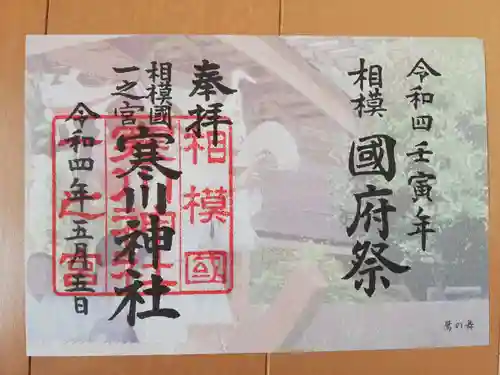 令和四壬寅年
相模 國府祭
鷺の舞
奉拝
相模國
一之宮
寒川神社
令和四年五月五日
相模國
一之宮
寒川神社